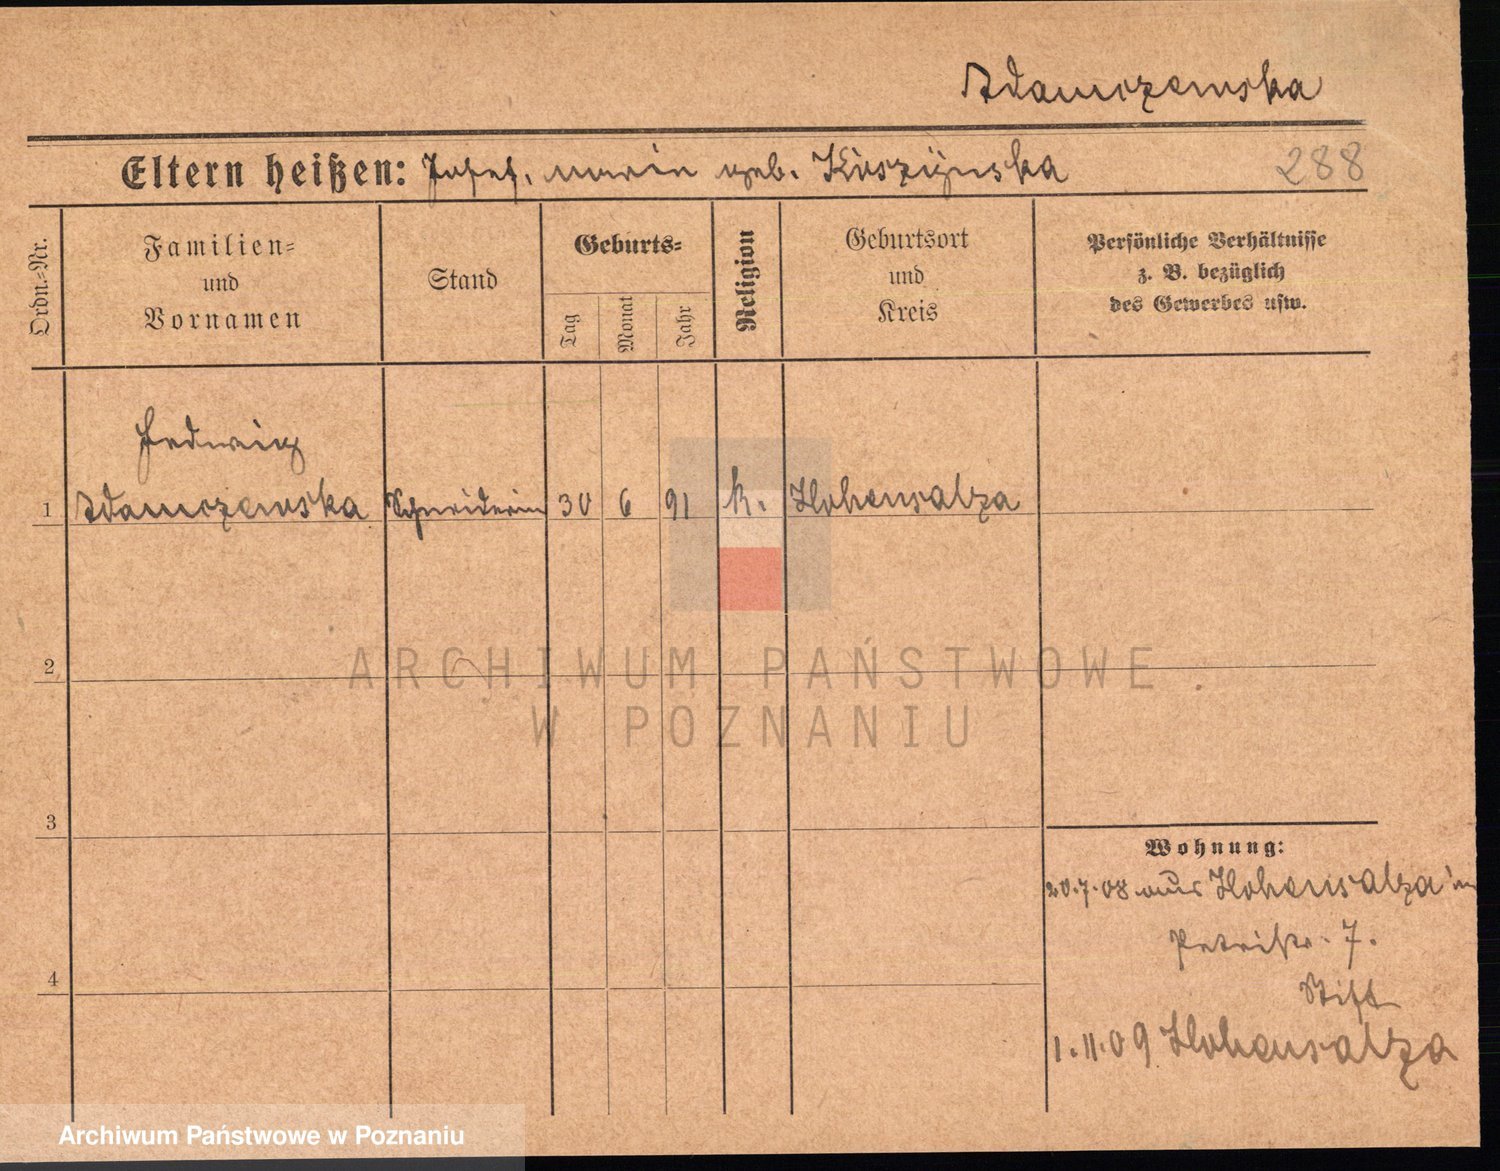 Adamczewska
Eltern heißen: Josef, Maria geb. Kuszynska
288
Ordn.-Nr.
Familien-
und
Vornamen
Stand
Geburts-
Tag
Monat
Jahr
Religion
Geburtsort
und
Kreis
Persönliche Verhältnisse
z. B. bezüglich
des Gewerbes usw.
Hedwig
1 Adamczewska Schneiderin 30 6 91 k. Hohensalza
2
ARCHIWUM PAŃSTWOWE
W POZNANIU
3
Wohnung:
20.7.08 aus Hohensalza in
Petristr. 7.
4
Stift
1.11.09 Hohensalza
Archiwum Państwowe w Poznaniu